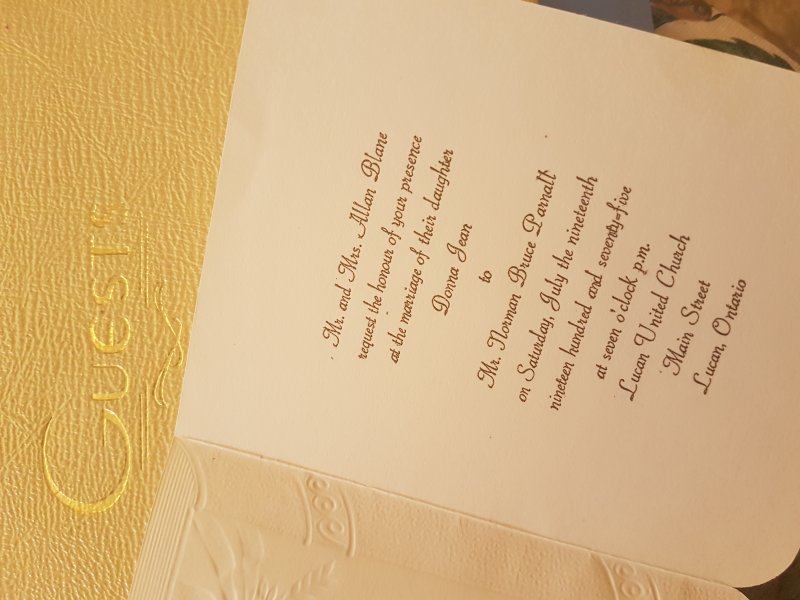 GUESTS
Mr. and Mrs. Allan Blane
request the honour of your presence
at the marriage of their daughter
Donna Jean
to
Mr. Norman Bruce Parnall
on Saturday, July the nineteenth
nineteen hundred and seventy=five
at seven o'clock p.m.
Lucan United Church
Main Street
Lucan, Ontario